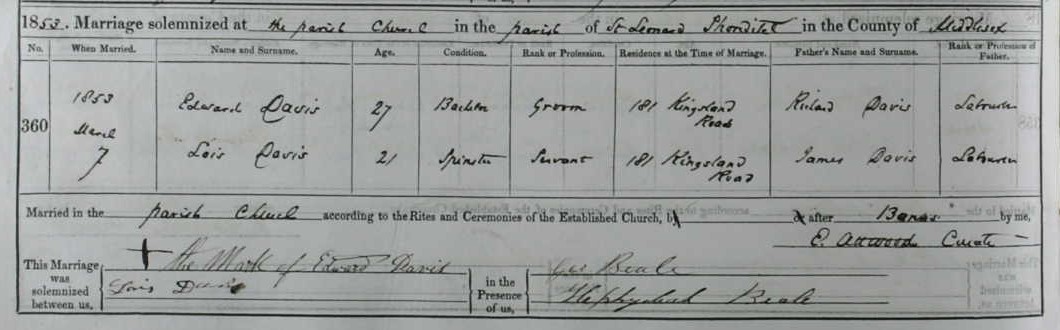 1853. Marriage solemnized at the parish Church in the parish of St Leonard Shoreditch in the County of Middlesex
No. When Married. Name and Surname. Age. Condition. Rank or Profession. Residence at the Time of Marriage. Father's Name and Surname. Rank or Profession of Father.
360 1853 March 7 Edward Davis 27 Bachelor Groom 181 Kingsland Road Richard Davis Labourer
Lois Davis 21 Spinster Servant 181 Kingsland Road James Davis Labourer
Married in the parish Church according to the Rites and Ceremonies of the Established Church, by or after Banns by me,
E. Attwood Curate
This Marriage was solemnized between us, the Mark of Edward Davis
Lois Davis
in the Presence of us, Geo Beale
Beale